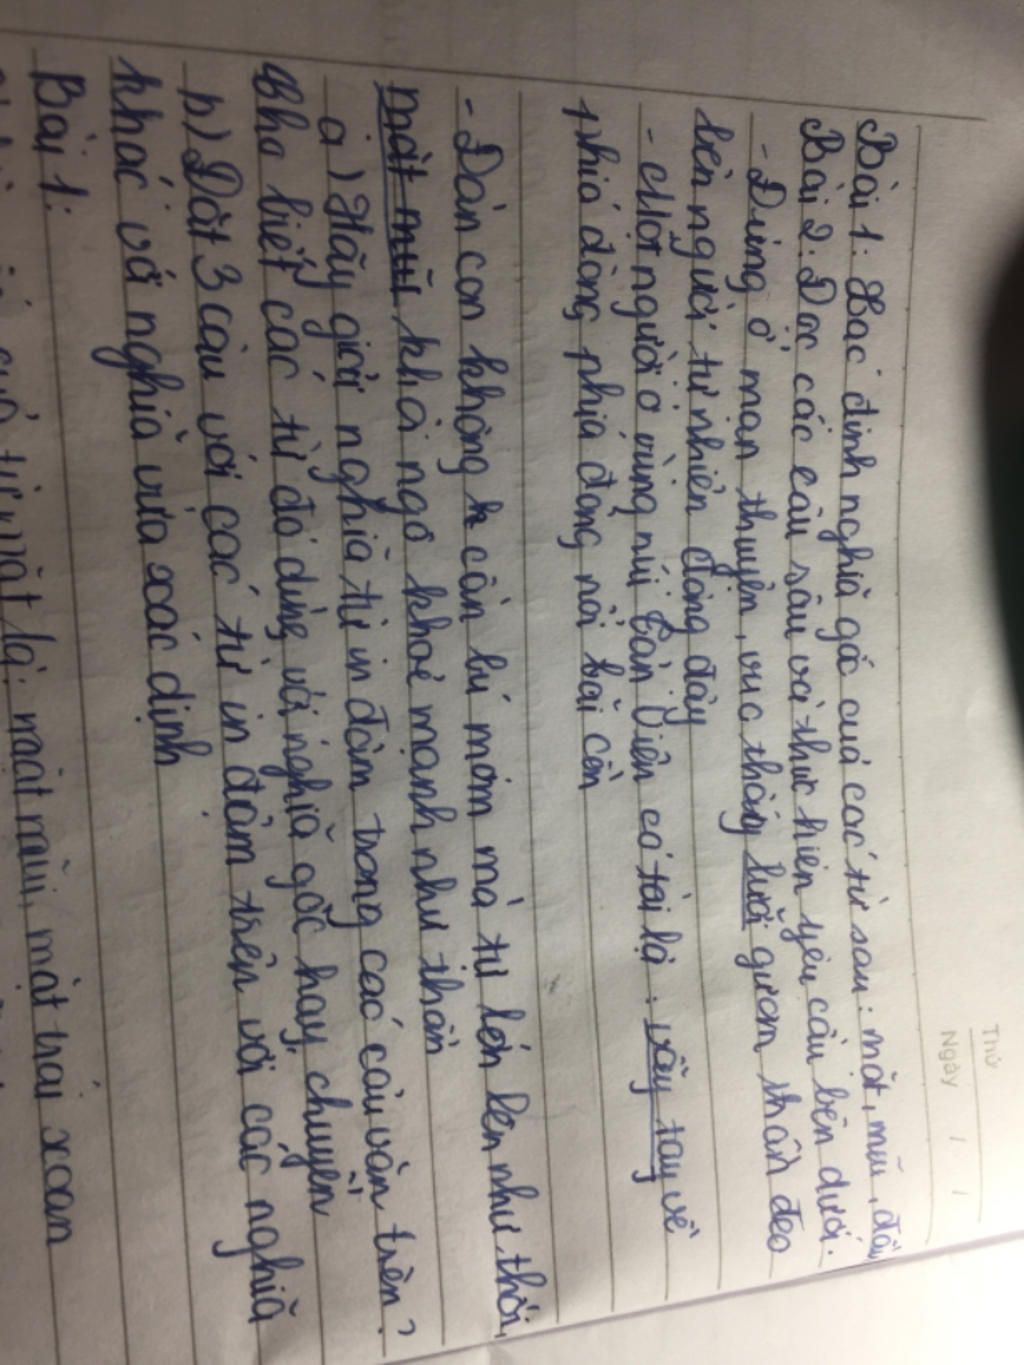 Thứ
Ngày / /
Bài 1: Xác định nghĩa gốc của các từ sau: mắt, mũi, đầu
Bài 2: Đọc các câu sau và thực hiện yêu cầu bên dưới.
- Đứng ở mạn thuyền, vục thấy lưỡi gươm thần đeo
bên người tự nhiên động đậy
- Một người ở vùng núi Tản Viên có tài lạ: vẫy tay về
phía đông, phía đông nổi bãi cồn
- Đàn con không cần bú mớm mà tự lớn lên như thổi,
mặt mũi khôi ngô khoẻ mạnh như thần
a) Hãy giải nghĩa từ in đậm trong các câu văn trên?
Cho biết các từ đó dùng với nghĩa gốc hay, chuyển
b) Đặt 3 câu với các từ in đậm trên với các nghĩa
khác với nghĩa vừa xác định
Bài 1:
từ mắt là: mắt mũi, mặt trái xoan